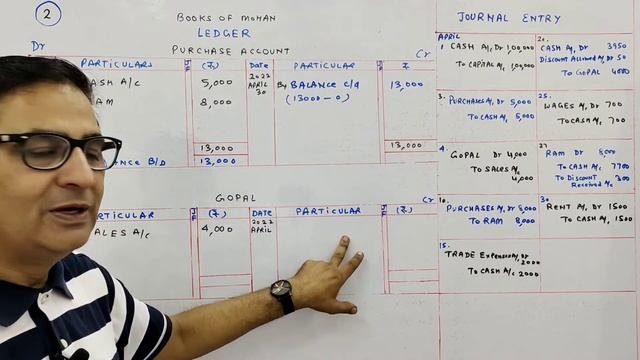 2
BOOKS OF MOHAN
LEDGER
PURCHASE ACCOUNT
Dr
Cr
PARTICULARS J.F. (₹) DATE PARTICULAR J.F. ₹
CASH A/C 5,000 2022 APRIL 30 By BALANCE c/d 13,000
RAM 8,000 (13000 - 0)
13,000 13,000
BALANCE B/D 13,000
GOPAL
Cr
PARTICULAR J.F. (₹) DATE PARTICULAR J.F. (₹)
SALES A/C 4,000 2022 APRIL
JOURNAL ENTRY
APRIL
1. CASH A/c, Dr 1,00,000
TO CAPITAL A/c, 1,00,000
3. PURCHASES A/c, Dr 5,000
TO CASH A/c, 5,000
4. GOPAL Dr 4,000
TO SALES A/c
4,000
10. PURCHASES A/c, Dr 8,000
TO RAM 8,000
15.
TRADE EXPENSES A/c, Dr
2000
TO CASH A/c 2000
20.
CASH A/c, Dr 3950
DISCOUNT ALLOWED A/c, Dr 50
TO GOPAL 4000
25.
WAGES A/c, Dr 700
TO CASH A/c, 700
27
RAM Dr 8,000
TO CASH A/c, 7700
TO DISCOUNT 300
RECEIVED A/c
30
RENT A/c, Dr 1500
TO CASH A/c, 1500